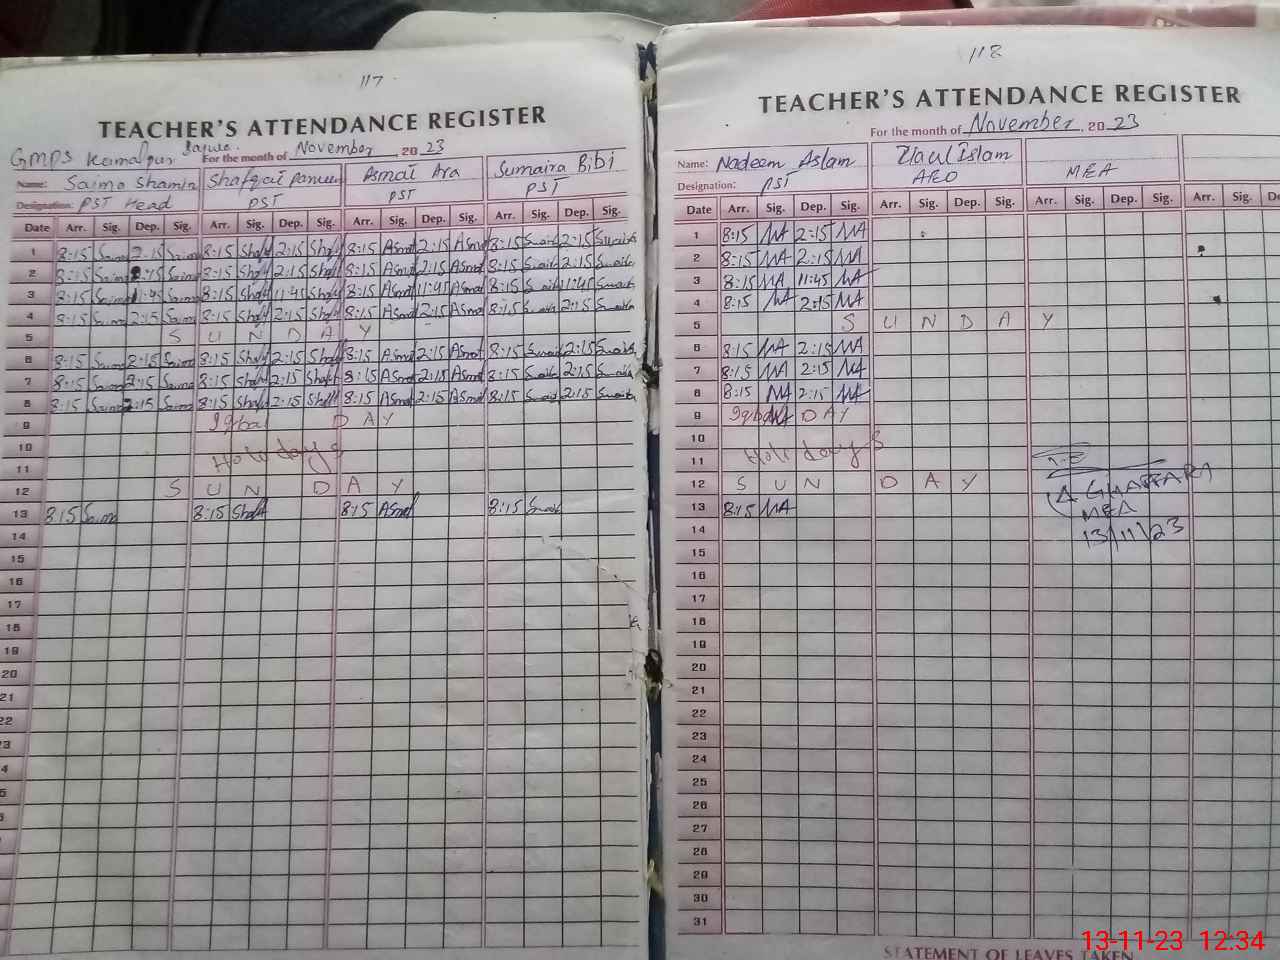 117
TEACHER'S ATTENDANCE REGISTER
GMPS Kamalpur
For the month of November, 20 23
Name: Saima Shamim Shafqat Parveen Asmat Ara Sumaira Bibi
Designation: PST Head PST PST PST
Date Arr. Sig. Dep. Sig. Arr. Sig. Dep. Sig. Arr. Sig. Dep. Sig. Arr. Sig. Dep. Sig.
1 8:15 Saima 2:15 Saima 8:15 Shaf 2:15 Shaf 8:15 Asmat 2:15 Asmat 8:15 2:15
2 8:15 Saima 2:15 Saima 8:15 Shaf 2:15 Shaf 8:15 Asmat 2:15 Asmat 8:15 2:15
3 8:15 Saima 11:45 Saima 8:15 Shaf 11:45 Shaf 8:15 Asmat 11:45 Asmat 8:15 11:45
4 8:15 Saima 2:15 Saima 8:15 Shaf 2:15 Shaf 8:15 Asmat 2:15 Asmat 8:15 2:15
5 S U N D A Y
6 8:15 Saima 2:15 Saima 8:15 Shaf 2:15 Shaf 8:15 Asmat 2:15 Asmat 8:15 2:15
7 8:15 Saima 2:15 Saima 8:15 Shaf 2:15 Shaf 8:15 Asmat 2:15 Asmat 8:15 2:15
8 8:15 Saima 2:15 Saima 8:15 Shaf 2:15 Shaf 8:15 Asmat 2:15 Asmat 8:15 2:15
9 Iqbal D A Y
10
11 Holidays
12 S U N D A Y
13 8:15 Saima 8:15 Shaf 8:15 Asmat 8:15
14
15
16
17
18
19
20
21
22
23
118
TEACHER'S ATTENDANCE REGISTER
For the month of November, 20 23
Name: Nadeem Aslam Zia ul Islam
Designation: PST AEO MEA
Date Arr. Sig. Dep. Sig. Arr. Sig. Dep. Sig. Arr. Sig. Dep. Sig. Arr. Sig. De
1 8:15 NA 2:15 NA
2 8:15 NA 2:15 NA
3 8:15 NA 11:45 NA
4 8:15 NA 2:15 NA
5 S U N D A Y
6 8:15 NA 2:15 NA
7 8:15 NA 2:15 NA
8 8:15 NA 2:15 NA
9 Iqbal D A Y
10
11 Holidays
12 S U N D A Y
(A GHAFFAR)
13 8:15 NA
MEA
14
13/11/23
15
16
17
18
19
20
21
22
23
24
25
26
27
28
29
30
31
STATEMENT OF LEAVES TAKEN
13-11-23 12:34